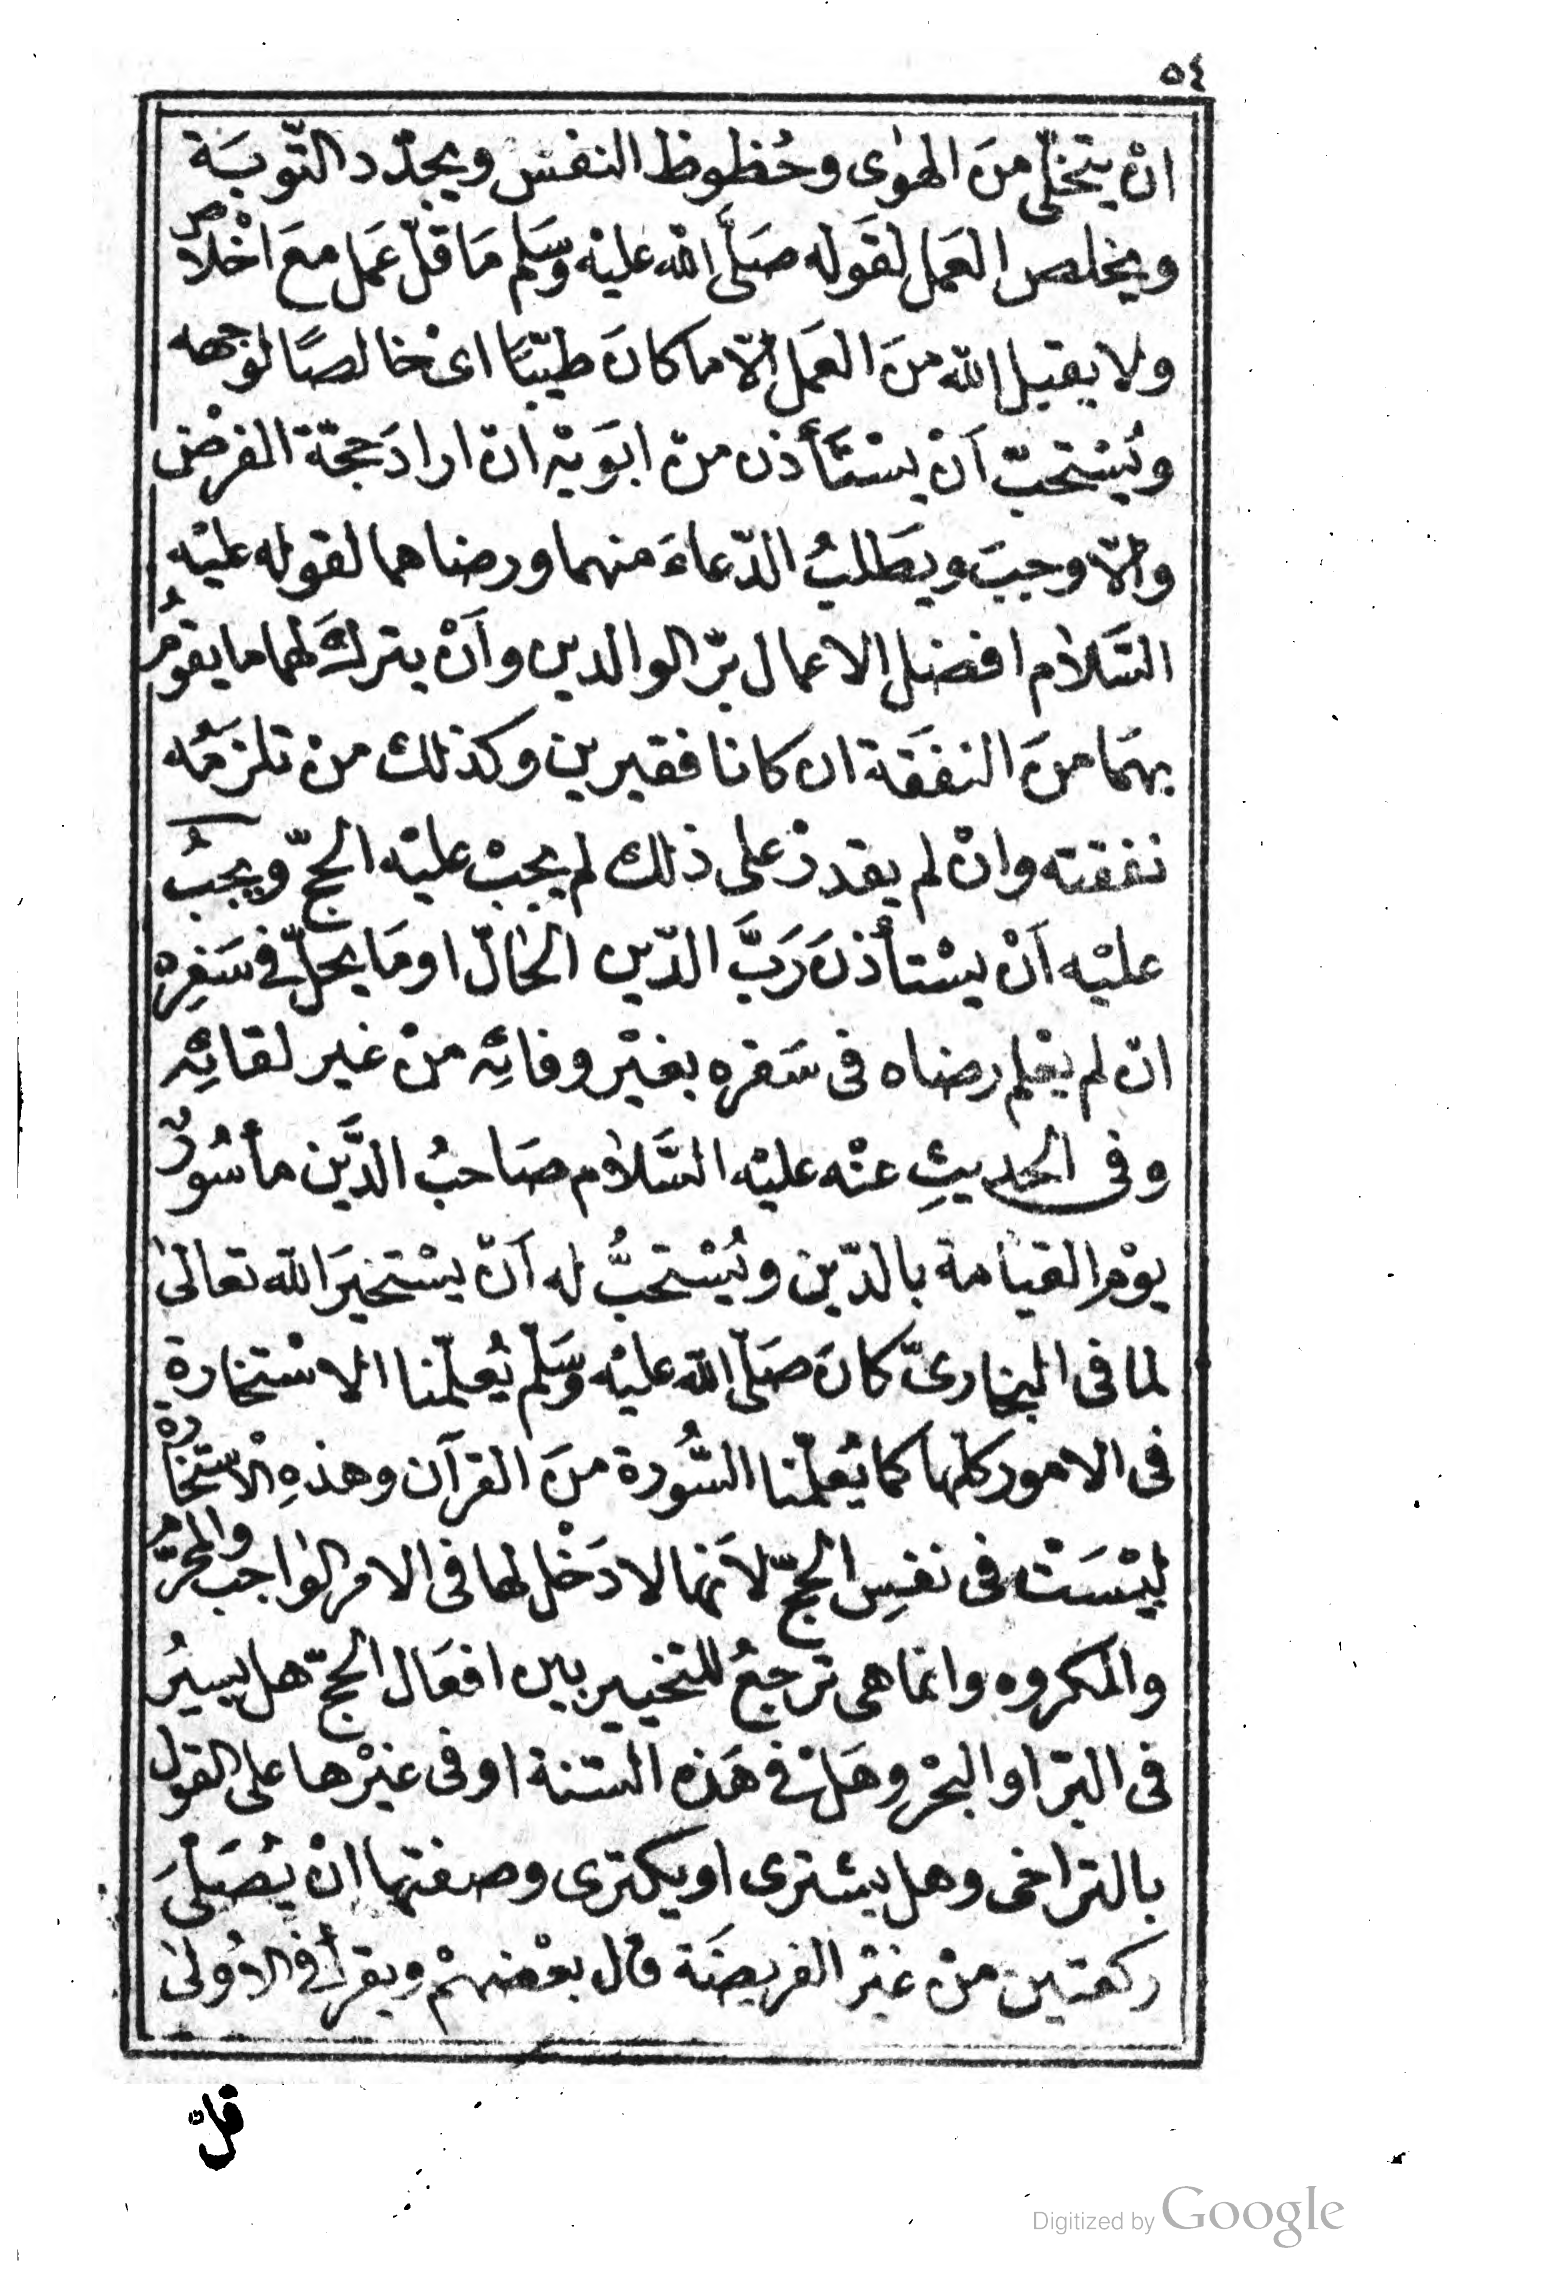 ٥٤
انْ يتخلّى منَ الهوٰى وحُظوظ النفس ويجدّد التّوبَة
ويخلص العَمل لقَوله صَلَّى الله عليْه وسَلم مَا قلّ عَمل معَ اخْلاص
ولا يقبل الله منَ العَمل الّا ما كانَ طيّبًا اىْ خالصًا لوجهه
ويُسْتحبّ اَنْ يسْتَأذن منْ ابوَيْه انْ ارادَ حجّة الفرْض
والّا وجبَ ويَطلبُ الدّعاءَ منهما ورضاهما لقوله عليْه
السَّلاٰم افضل الاعمال برّ الوالدين واَنْ يتركَ لهما ما يقومُ
بهمَا منَ النفَقة ان كانا فقيرين وكذلك منْ تلزمُه
نفقته وانْ لم يقدرْ على ذلك لم يجبْ عليْه الحجّ ويجبُ
عليْه اَنْ يسْتأذنَ رَبَّ الدّين الحٰالّ اومَا يحلّ فى سَفرِه
انْ لم يعْلم رضاه فى سَفره بغيْر وفائِه منْ غير لقائِه
وفى الحديثِ عنْه عليْه السَّلاٰم صَاحبُ الدَّين مأسُورٌ
يوْم القيٰامة بالدّين ويُسْتحبُّ له اَنْ يسْتخيرَ الله تعالىٰ
لما فى البخارىّ كانَ صَلّى الله عليْه وسَلّم يُعلّمنا الاسْتخارة
فى الامور كلّها كما يُعلّمنا السُّورة منَ القرآن وهذهِ الاستخارة
ليْسَتْ فى نفسِ الحجّ لاَنها لا دَخْل لها فى الامر الواجب والمحرّم
والمكروه وانما هى ترجعُ للتخيير بين افعَال الحجّ هل يسيرُ
فى البرّ او البحْر وهَلْ فى هَذه السّنة اوفى غيْرها على القول
بالتراخى وهل يشترى او يكترى وصفتها انْ يُصَلّىَ
ركعتين منْ غيْر الفريضَة قال بعْضهمْ ويقرأ فى الاُولىٰ
قلْ
Digitized by Google